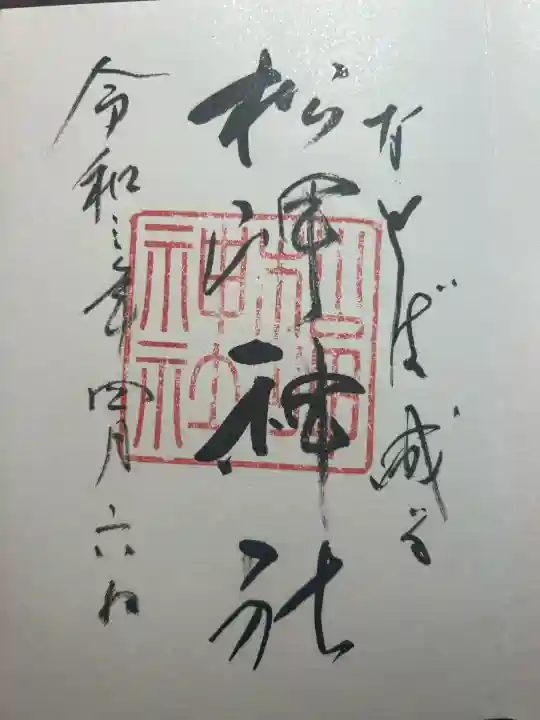 なせば成る
松岬神社
令和三年四月六日
松岬神社